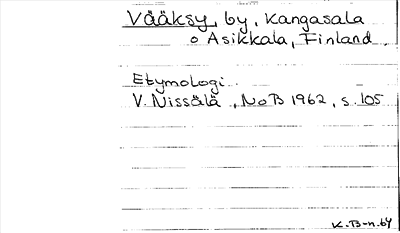 Vääksy, by, Kangasala
o Asikkala, Finland.
Etymologi.
V. Nissilä, NoB 1962, s. 105
K.B-n.